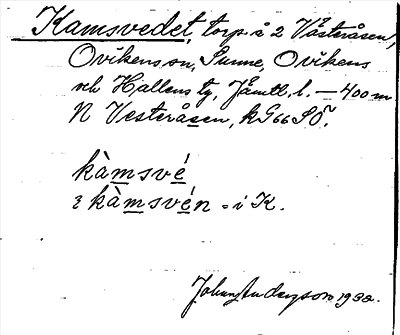 Kamsvedet, torp. å 2 Västeråsen,
Ovikens sn, Sunne, Ovikens
och Hallens tg, Jämtl. l. — 400 m
N Vesteråsen, kG66SÖ.
kàmsvé
i kàmsvén = i K.
Johan Anderson 1930.